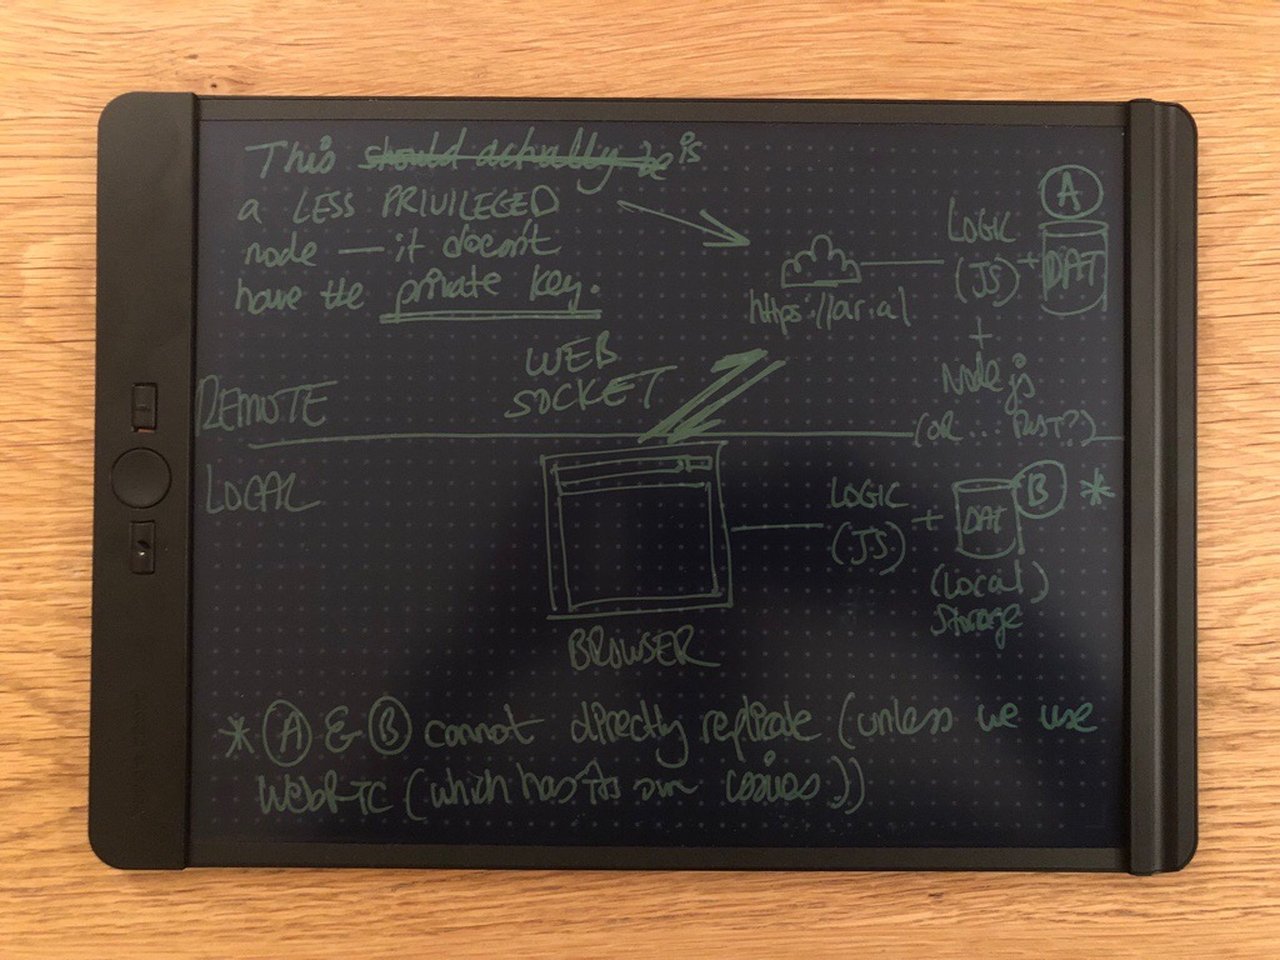 This should actually be is
a LESS PRIVILEGED
node — it doesn't
have the private key.
A
LOGIC
(JS) + DAT
https://ar.al
+
Node js
(OR ... RUST?)
WEB
SOCKET
REMOTE
LOCAL
LOGIC
(JS) + DAT B *
(Local)
Storage
BROWSER
* A & B cannot directly replicate (unless we use
WebRTC (which has its own issues.))